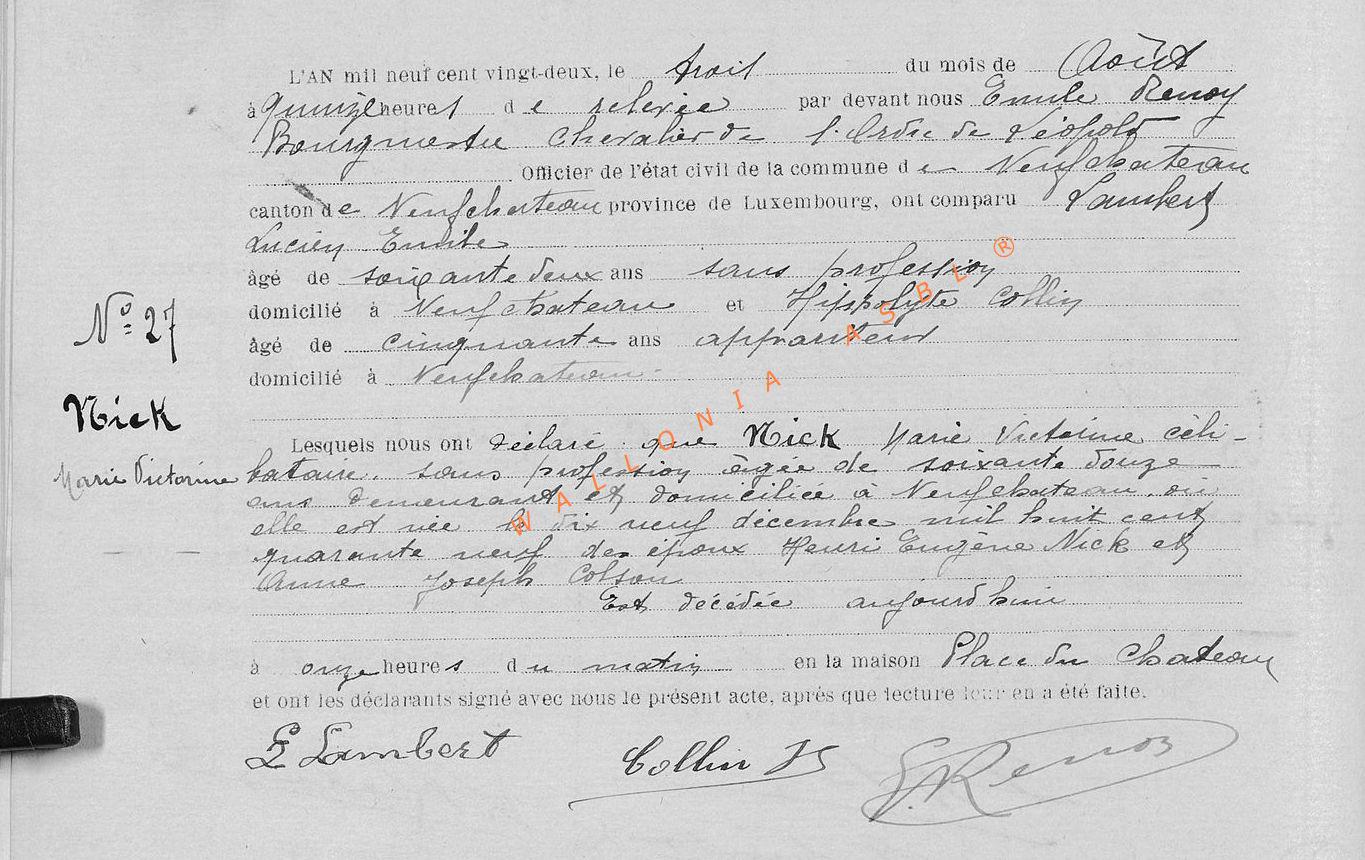 L'AN mil neuf cent vingt-deux, le trois du mois de Août
à quinze heures de relevée par devant nous Emile Renoy
Bourgmestre Chevalier de l'Ordre de Léopold
Officier de l'état civil de la commune de Neufchateau
canton de Neufchateau province de Luxembourg, ont comparu Lambert
Lucien Emile
âgé de soixante deux ans sans profession
domicilié à Neufchateau et Hippolyte Collin
âgé de cinquante ans appariteur
domicilié à Neufchateau
N° 27
Nick
Marie Victorine
Lesquels nous ont déclaré que Nick Marie Victorine céli-
bataire, sans profession âgée de soixante douze
ans demeurant et domiciliée à Neufchateau, où
elle est née le dix neuf décembre mil huit cent
quarante neuf des époux Henri Eugène Nick et
Anne Joseph Colson
Est décédée aujourd'hui
à onze heures du matin en la maison Place du Chateau
et ont les déclarants signé avec nous le présent acte, après que lecture leur en a été faite.
L Lambert Collin H E. Renoy
WALLONIA ASBL ®